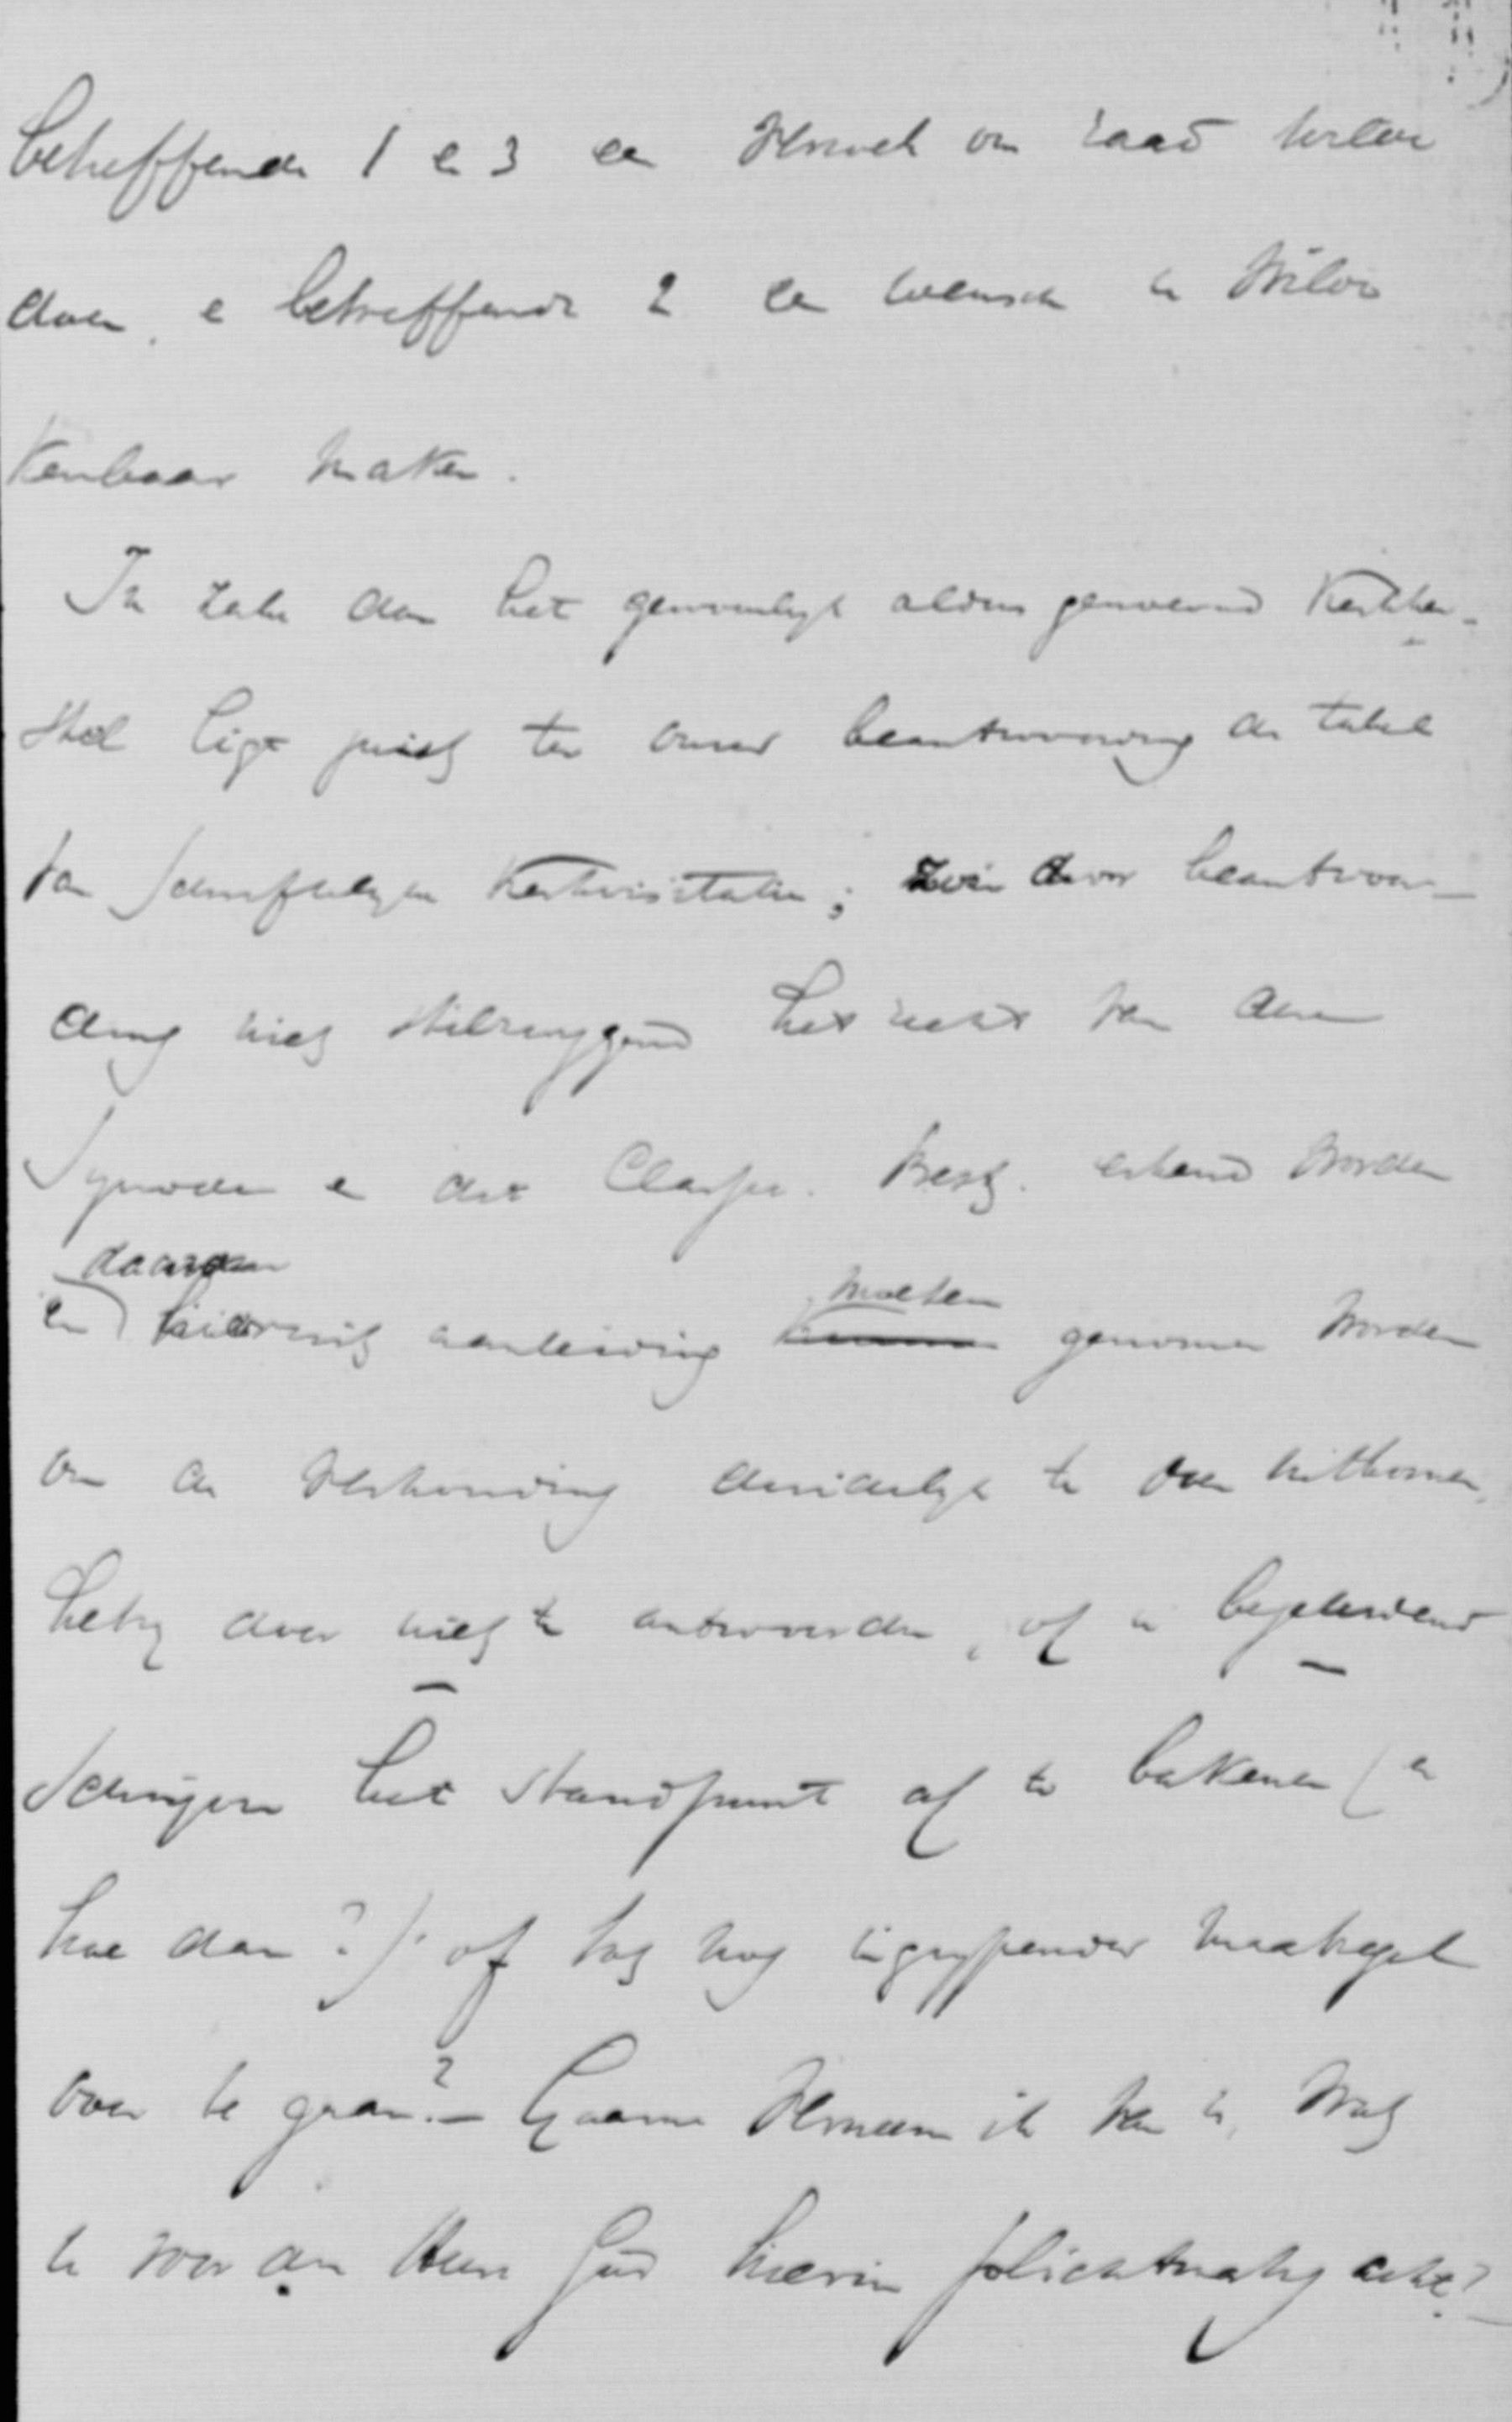 betreffende 1 en 3 een verzoek om raad willen
doen, en betreffende 2 een wensch u willen
kenbaar maken.
In zake dan het gewoonlijk aldus genoemd Kerkher-
stel ligt juist ter onzer beantwoording de tabel
van schriftelijke Kerkvisitatie; zou door beantwoor-
ding niet stilzwijgend het recht van deze
Synode en dit Classic. Best. erkend worden
daarom
en hieruit aanleiding moeten genomen worden
om de verhouding duidelijk te doen uitkomen,
hetzij door niet te antwoorden, of in begeleidend
schrijven het standpunt af te bakenen (en
hoe dan?) of tot nog ingrijpender maatregel
over te gaan? – Gaarne verneem ik van u, wat
u voor den Heere God hierin plichtmatig acht?